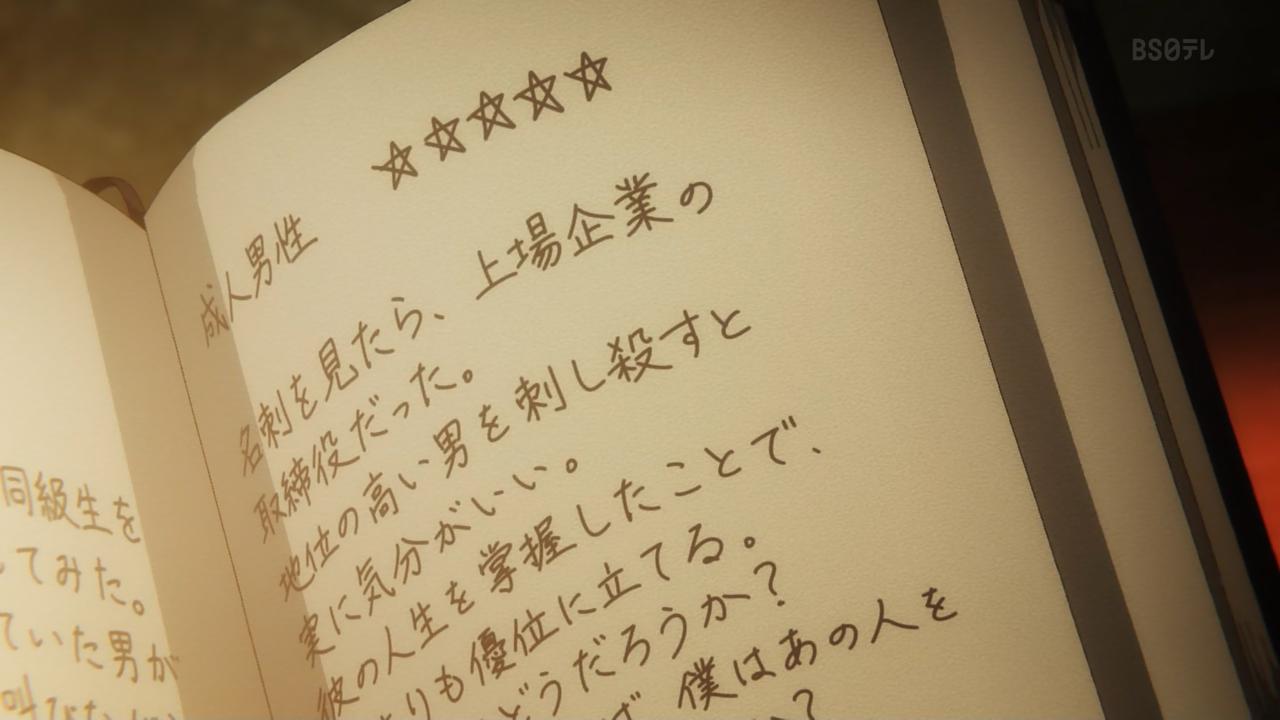 BS日テレ
同級生を
てみた。
ていた男が
☆☆☆☆☆
成人男性
名刺を見たら、上場企業の
取締役だった。
地位の高い男を刺し殺すと
実に気分がいい。
彼の人生を掌握したことで、
りも優位に立てる。
どうだろうか？
僕はあの人を
？